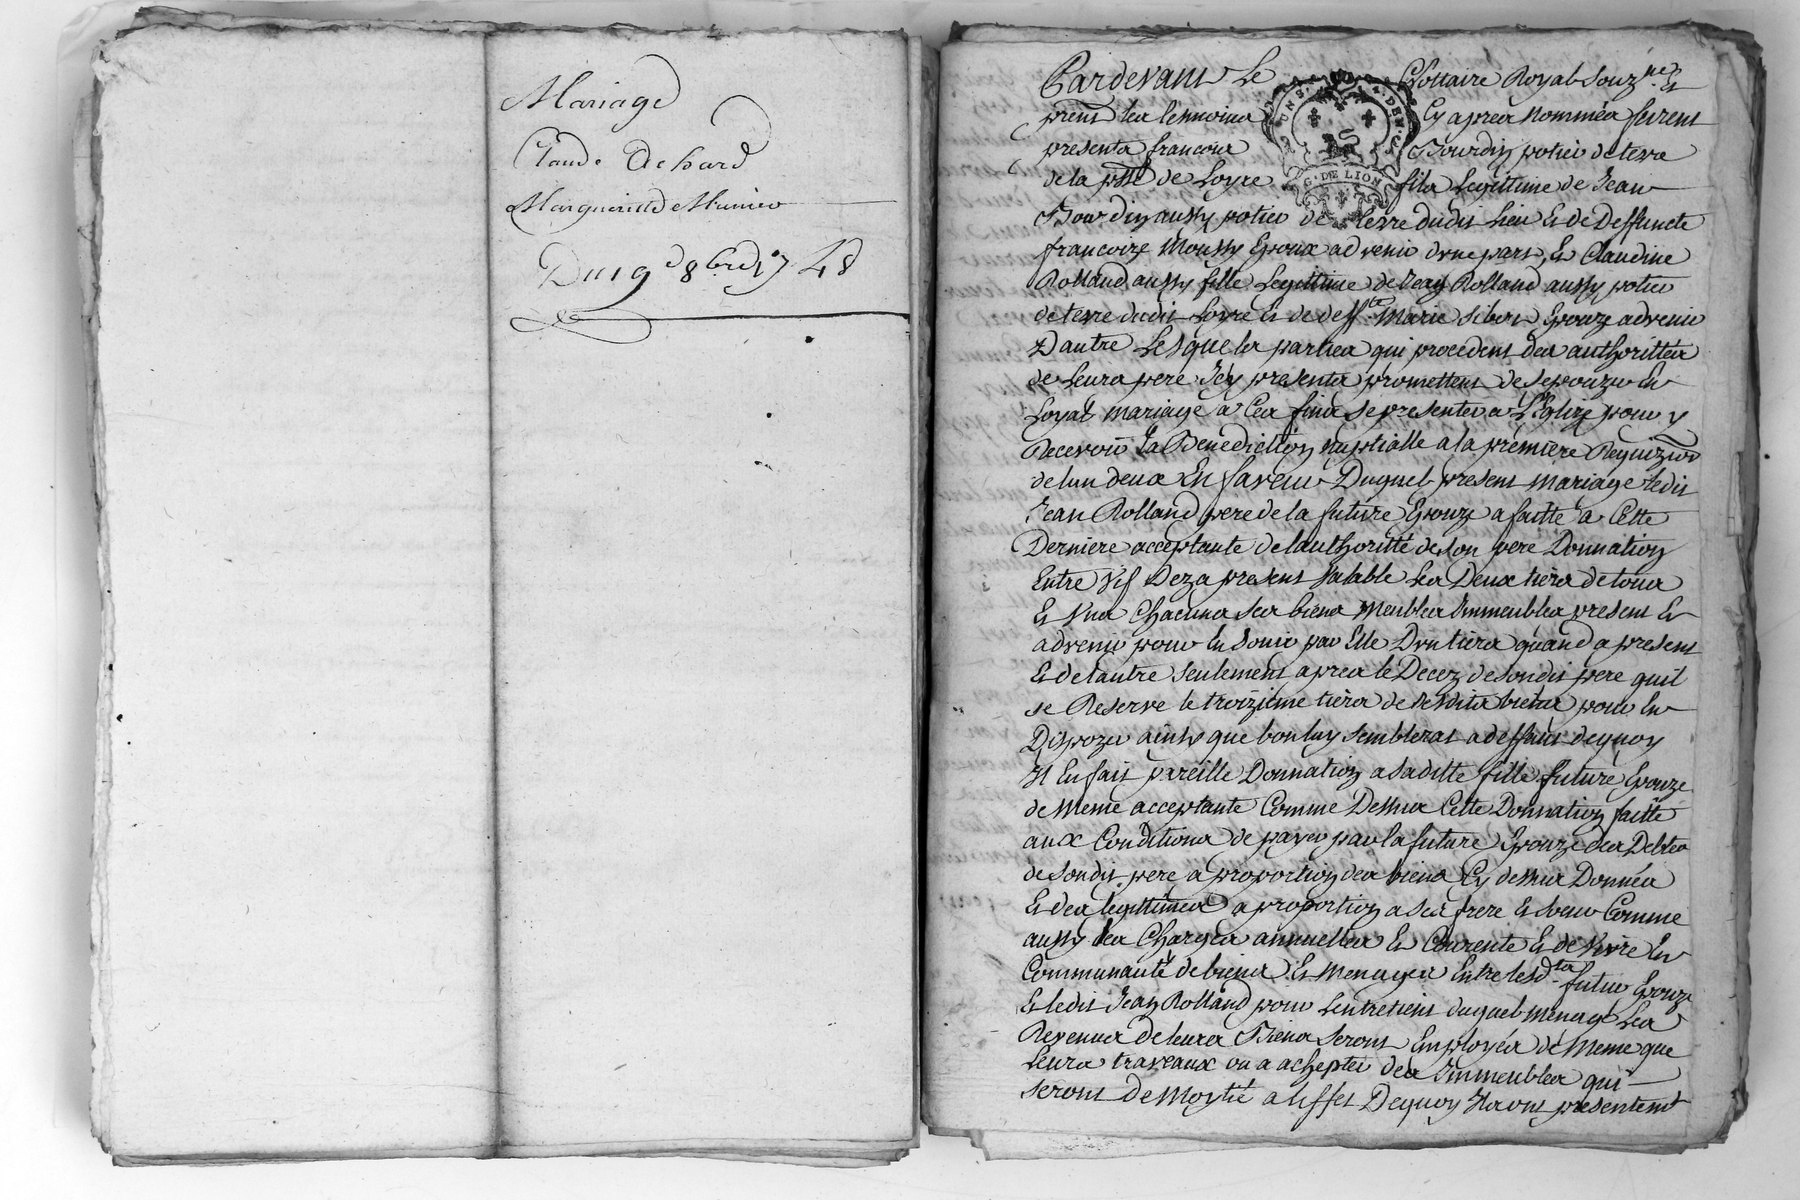 Mariage
Claude Dechard
Margueritte Munier
Du 19e 8bre 1748
Pardevant Le Nottaire Royal souzne Et
prent les temoins Cy apres Nommés furent
presents francois Bourdin potier de terre
de la psse de Loyre fils Legittime de Jean
Bourdin aussy potier de terre dudit Lieu Et de Deffuncte
francoize Moussy Epoux advenir d'vne part, Et Claudine
Rolland aussy fille Legittime de Jean Rolland aussy potier
de terre dudit Loyre Et de deffte Marie Sibert Epouze advenir
D'autre Lesquels parties qui procedent des authorittés
de Leurs pere Jcy presents promettent de sepouzer En
Loyal mariage a Ces fins se presenter a L'Eglize pour y
Recevoir La Benediction nuptialle a la premiere Requizion
de lun deux En faveur Duquel present mariage ledit
Jean Rolland pere de la future Epouze a faitte a Cette
Derniere acceptante de lauthoritté de son pere Donnation
Entre Vif Deza present Valable Les Deux tiers de tous
Et Vns Chacuns ses biens Meubles Immeubles present Et
advenir pour En Jouir par Elle D'vn tiers quand a present
Et de lautre seulement apres le Decez de sondit pere quil
se Reserve le troizieme tiers de sesdits biens pour En
Dispozer ainsy que bon luy semblerat a deffaut dequoy
Jl En fait pareille Donnation a sa ditte fille future Epouze
de Meme acceptante Comme Dessus Cette Donnation faitte
aux Conditions de payer par la future Epouze des Debtes
de sondit pere a proportion des biens Cy dessus Donnés
Et des legittimes a proportion a ses frere Et soeur Comme
aussy les Charges annuelles Et Courente Et de Vivre En
Communauté de biens Et Menages Entre lesdts futur Epouze
Et ledit Jean Rolland pour Lentretient duquel menage Les
Revenus de leurs Biens seront Employés de Meme que
Leurs traveaux ou a achepter des Immeubles qui
seront de Moytié a leffet Dequoy Jls ont presentemt
G. DE LION